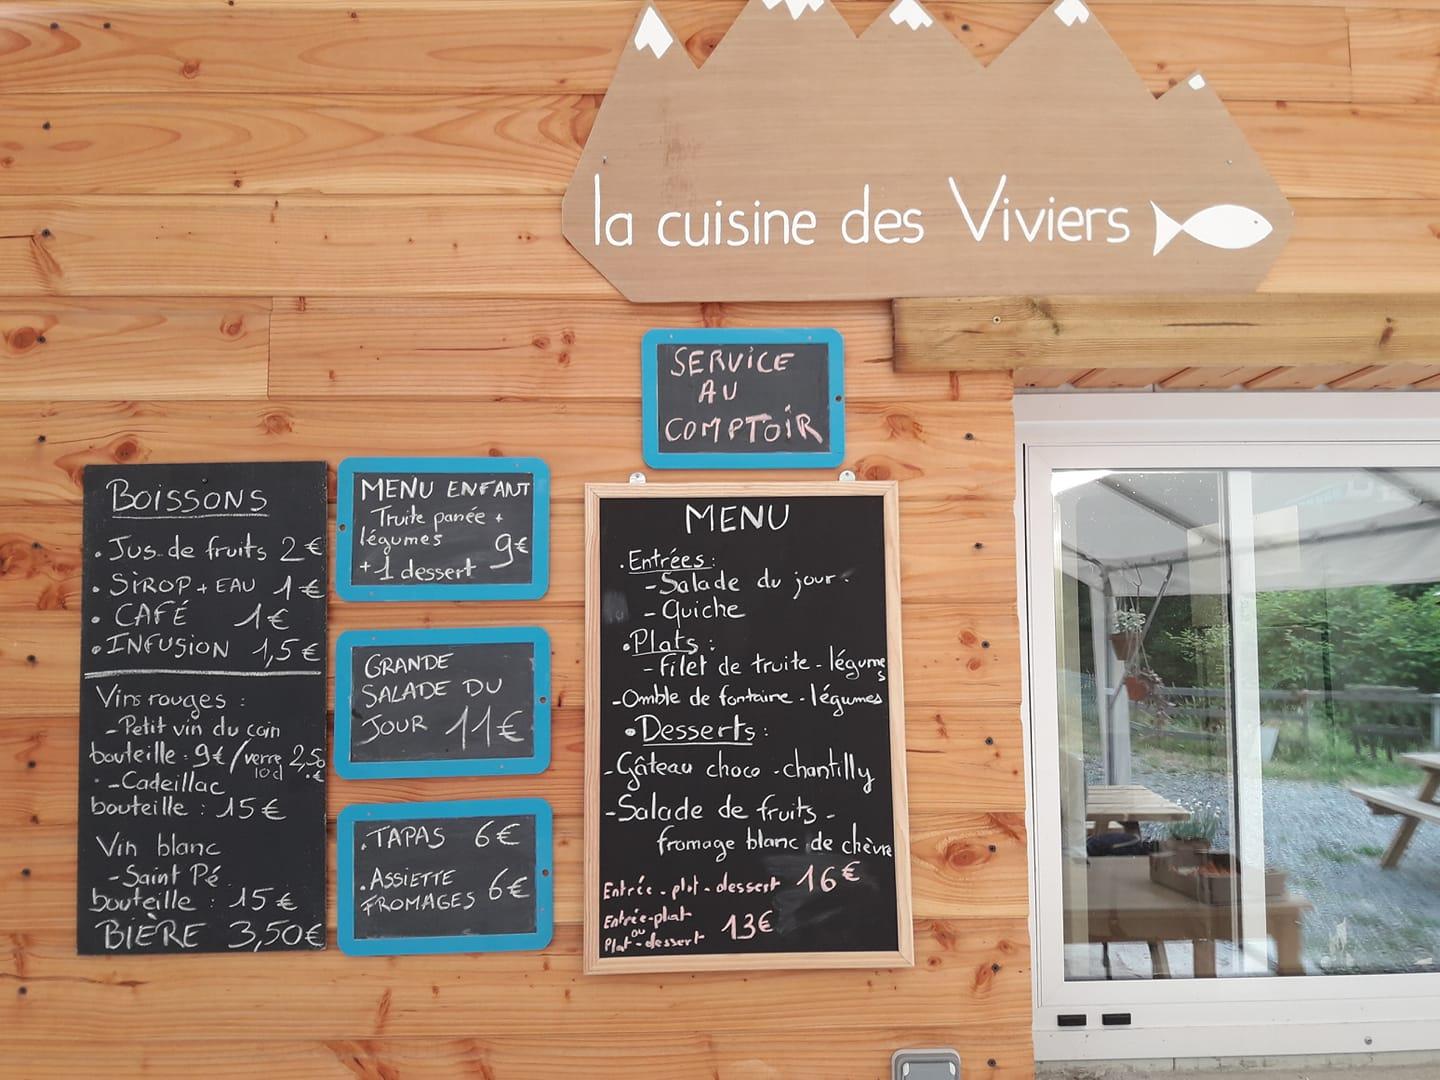 la cuisine des Viviers
SERVICE
AU
COMPTOIR
BOISSONS
• Jus de fruits 2€
• SIROP + EAU 1€
• CAFÉ 1€
• INFUSION 1,5€
Vins rouges :
- Petit vin du coin
bouteille : 9€ / verre 2,50
10cl €
- Cadeillac
bouteille : 15€
Vin blanc
- Saint Pé
bouteille : 15€
BIÈRE 3,50€
MENU ENFANT
Truite panée +
légumes 9€
+ 1 dessert
GRANDE
SALADE DU
JOUR 11€
. TAPAS 6€
. ASSIETTE
FROMAGES 6€
MENU
. Entrées :
- Salade du jour.
- Quiche
• Plats :
- Filet de truite - légumes
- Omble de fontaine - légumes
• Desserts :
- Gâteau choco - chantilly
- Salade de fruits -
fromage blanc de chèvre
Entrée - plat - dessert 16€
Entrée - plat
ou 13€
Plat - dessert